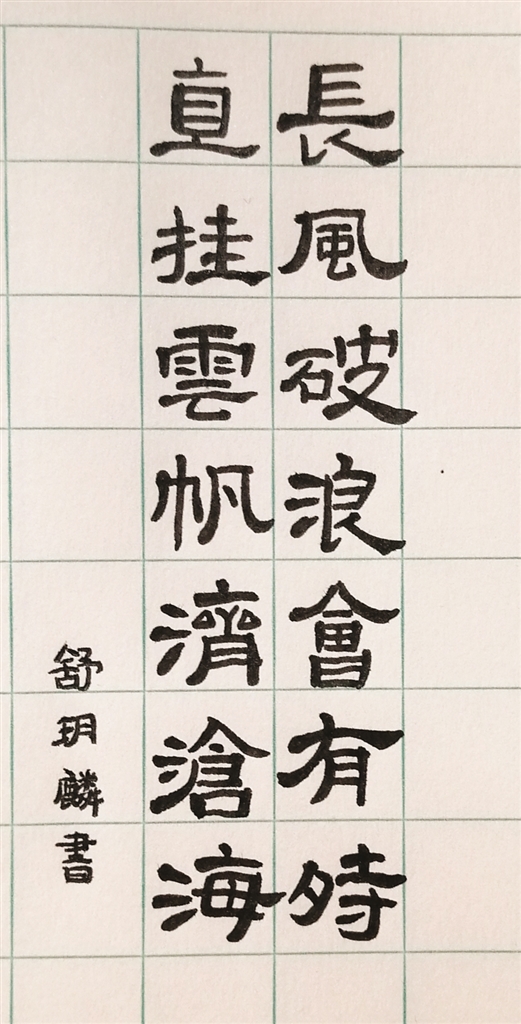 長風破浪會有時
直挂雲帆濟滄海
舒玥麟書